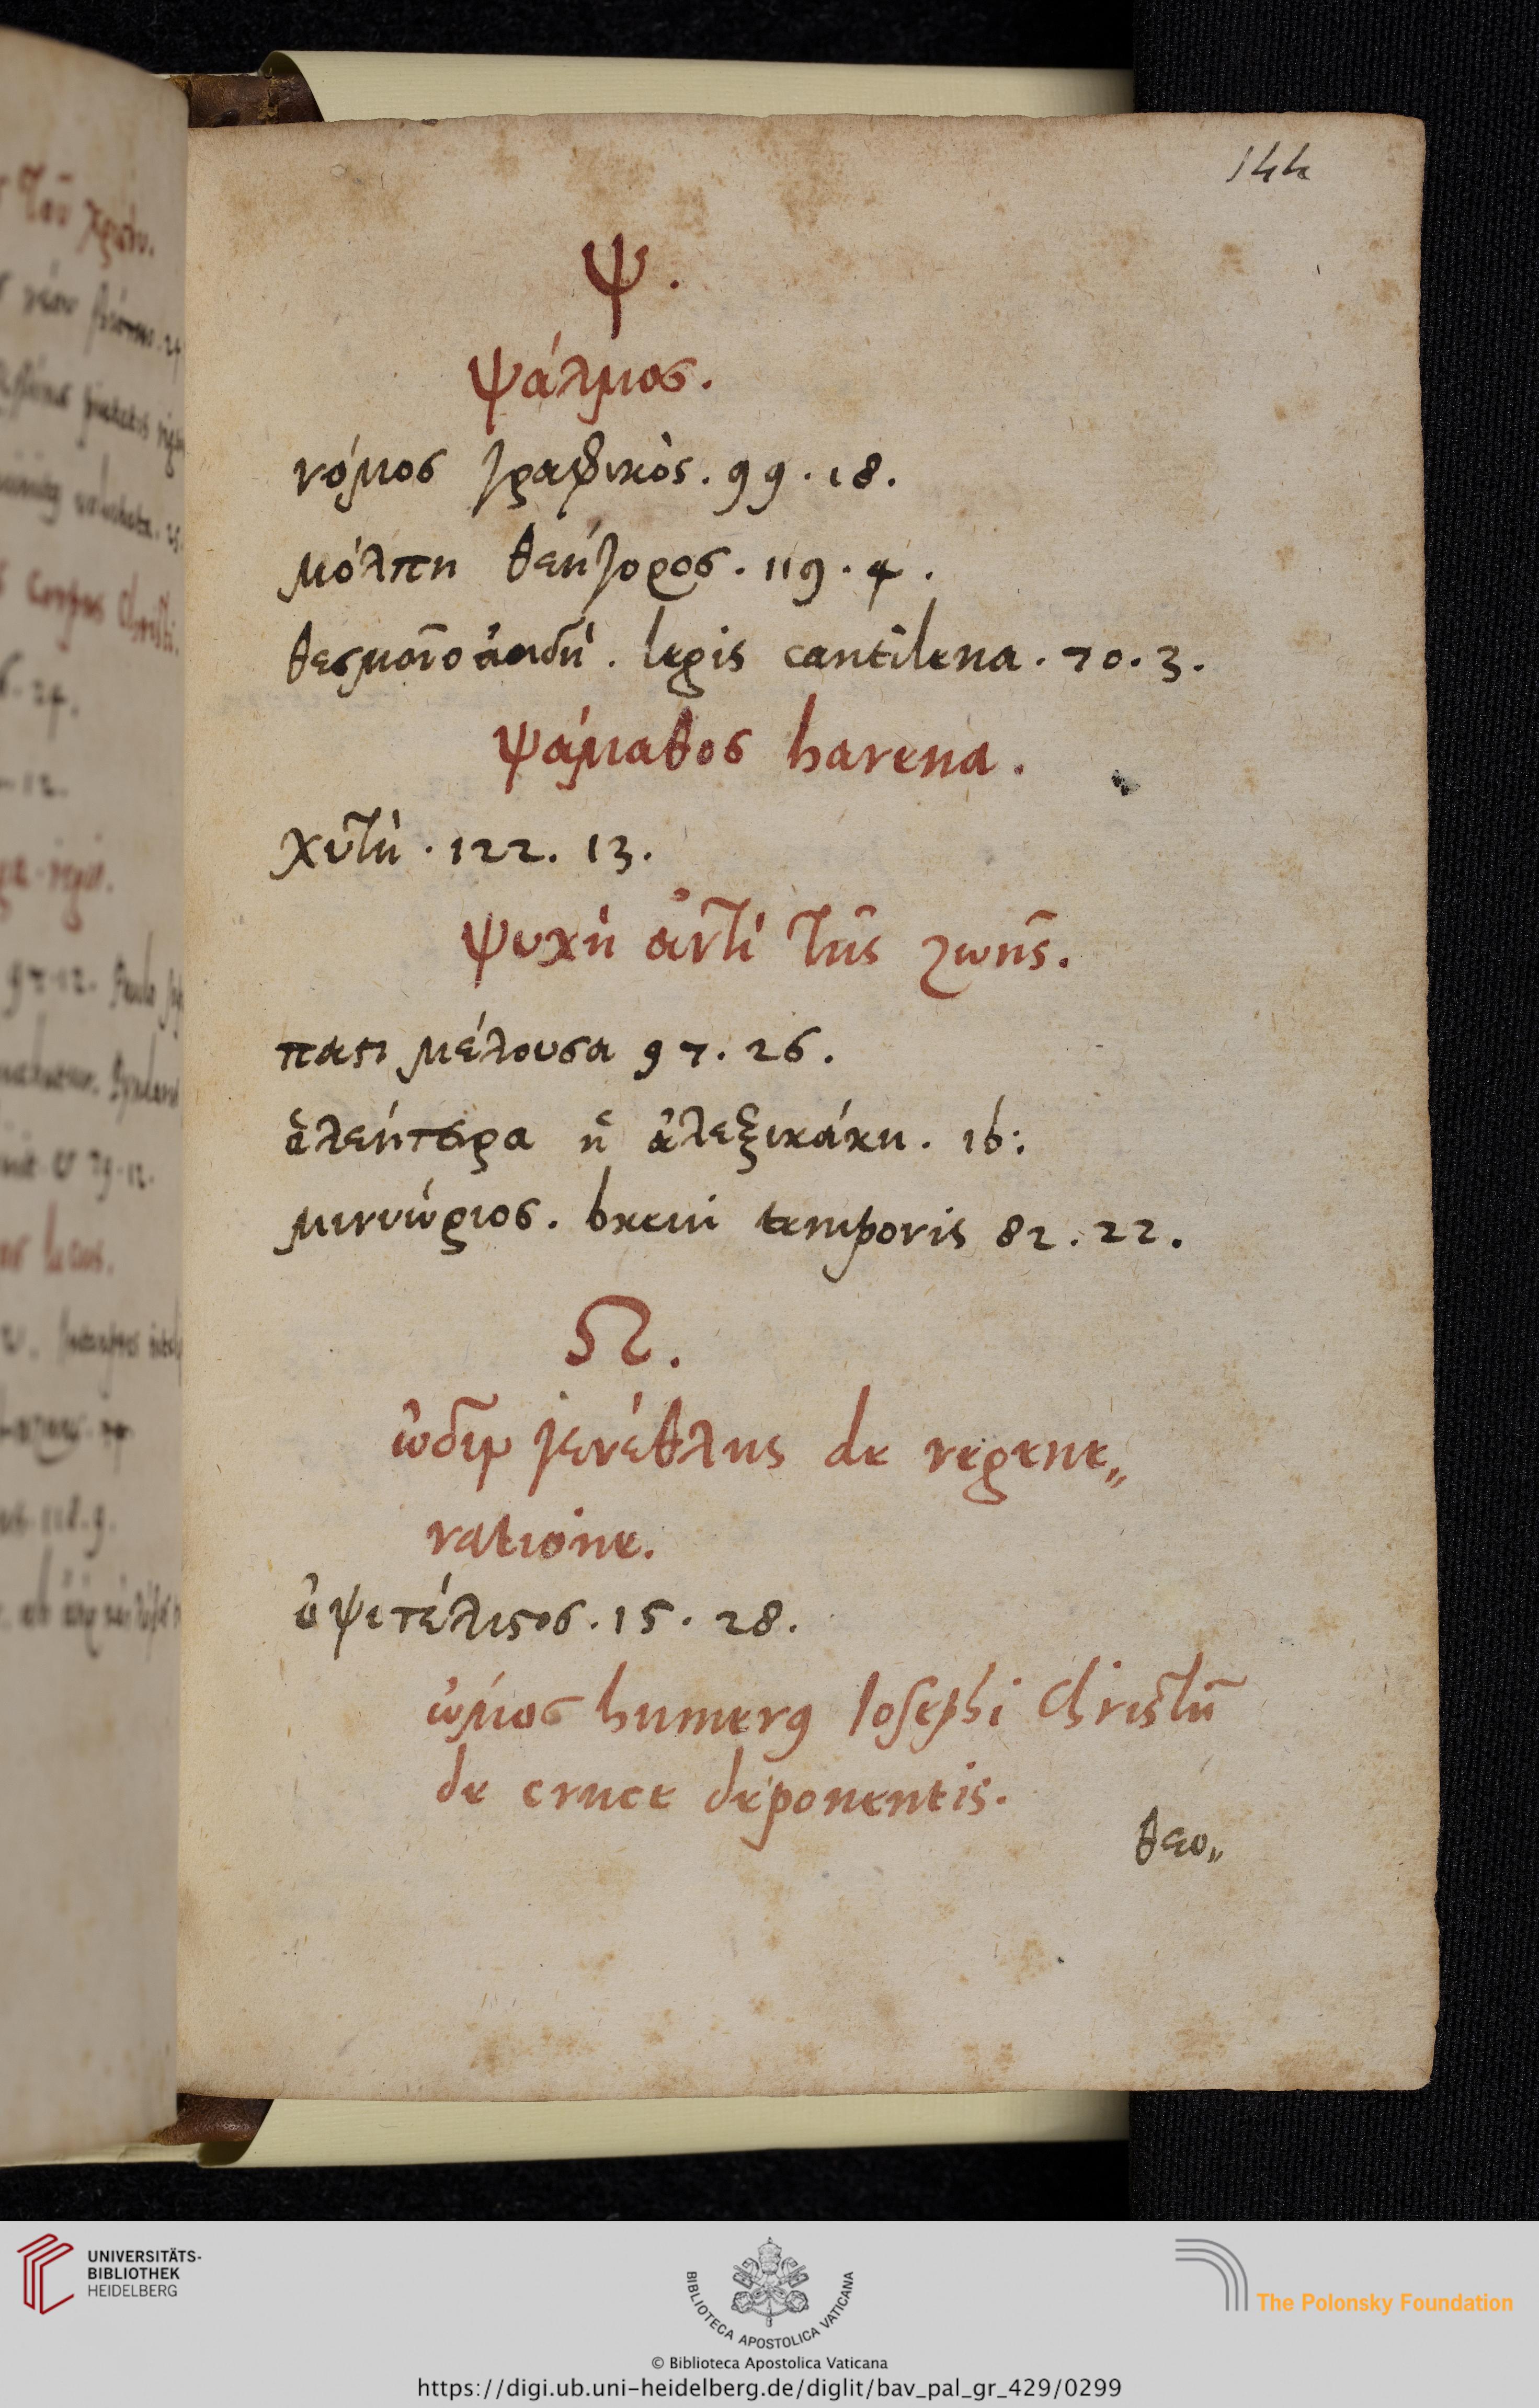 144
Ψ.
ψάλμος.
νόμος γραφικὸς. 99. 18.
μόλπη θεήγορος. 119. 4.
θεσμοῖο ἀοιδὴ. legis cantilena. 70. 3.
ψάμαθος harena.
χυτὴ. 122. 13.
ψυχὴ ἀντὶ τῆς ζωῆς.
πασι μέλουσα 97. 26.
ἀλεήτειρα ἢ ἀλεξικάκη. ib:
μινυώριος. brevi temporis 82. 22.
Ω.
ὠδῖν γενέθλης de regene„
ratione.
ὀψιτέλιςος. 15. 28.
ὠμος humerus Iosephi Christũ
de cruce deponentis.
θεο„
UNIVERSITÄTS-
BIBLIOTHEK
HEIDELBERG
BIBLIOTECA APOSTOLICA VATICANA
The Polonsky Foundation
© Biblioteca Apostolica Vaticana
https://digi.ub.uni-heidelberg.de/diglit/bav_pal_gr_429/0299